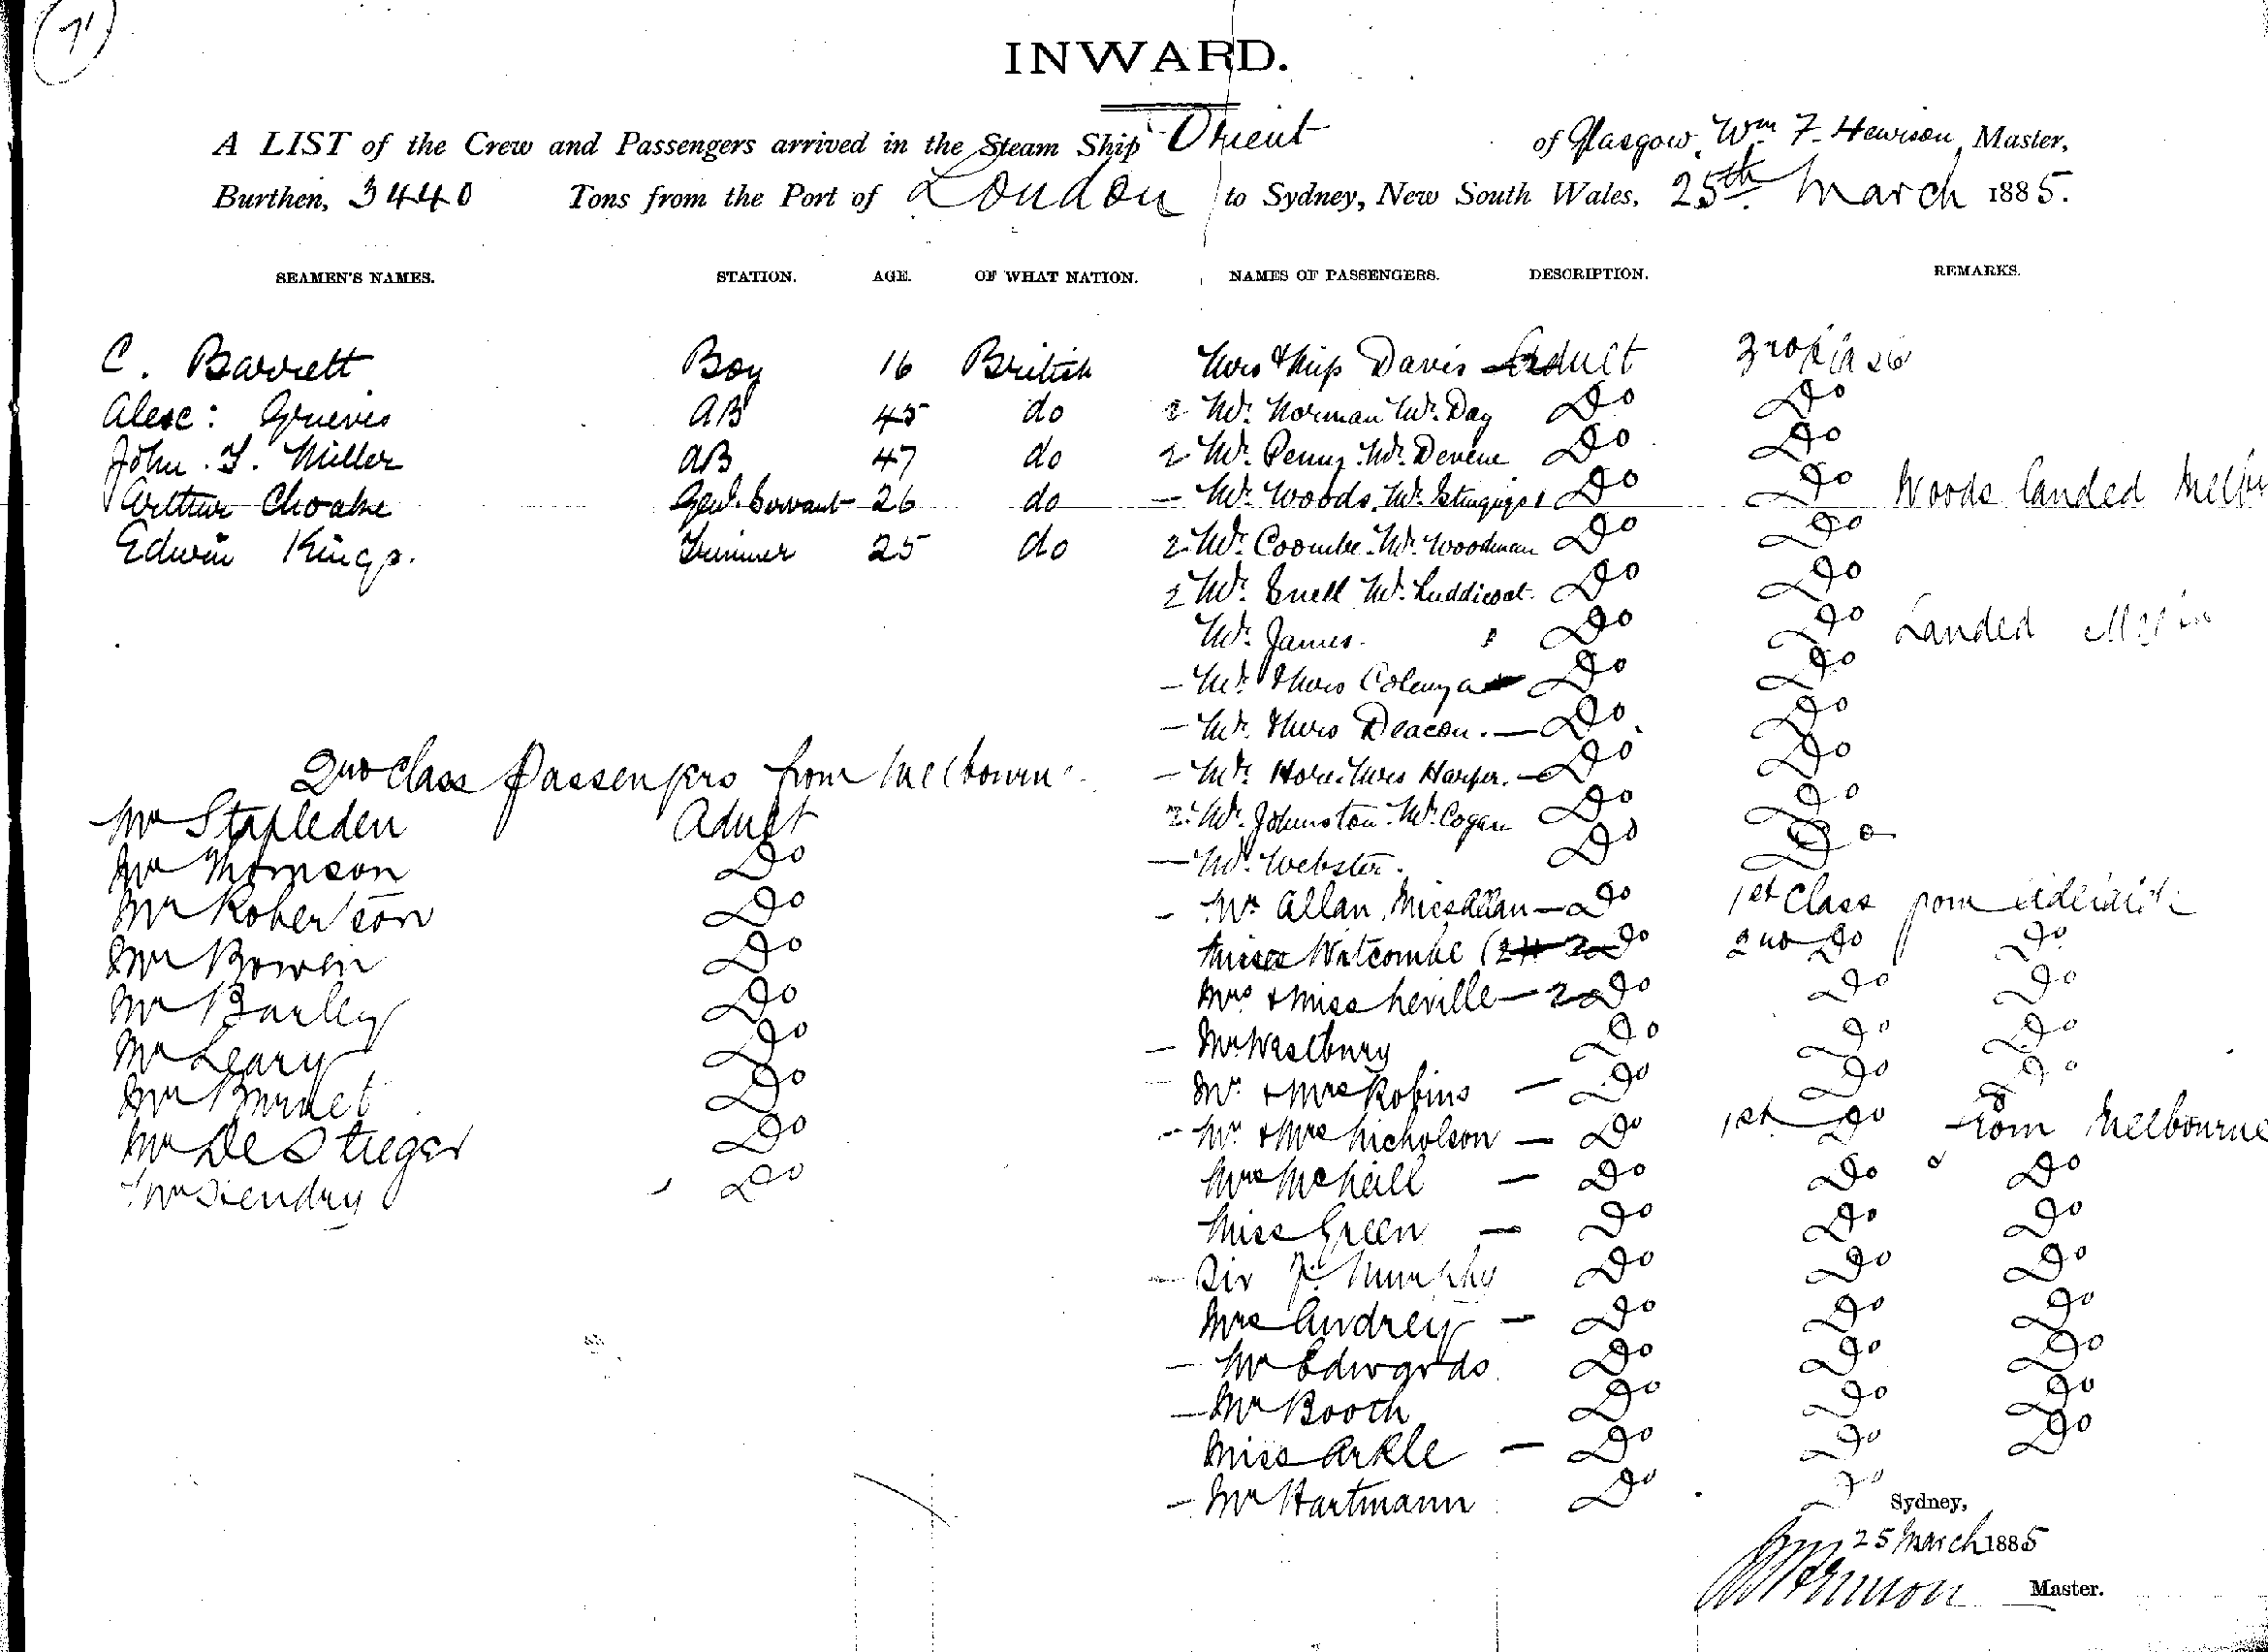 71
INWARD.
A LIST of the Crew and Passengers arrived in the Steam Ship Orient of Glasgow, Wm F. Hewison, Master,
Burthen, 3440 Tons from the Port of London to Sydney, New South Wales, 25th March 1885.
SEAMEN'S NAMES. STATION. AGE. OF WHAT NATION. NAMES OF PASSENGERS. DESCRIPTION. REMARKS.
C. Barrett Boy 16 British Mrs & Miss Davis Adult 3rd Class
Alexr: Grieves AB 45 do 2 Mr. Norman Mr. Day Do Do
John. Miller AB 47 do 2 Mr. Penny Mr. Devene Do Do
Arthur Choake Genl. Servant 26 do — Mr. Woods. Mr. Do Do Woods landed
Edwin Kings. Trimmer 25 do 2 Mr. Coombe. Mr. Woodman Do Do
2 Mr. Snell Mr. Luddicoat. Do Do
Mr. James. Do Do Landed
— Mr. & Mrs Do Do
— Mr. & Mrs Deacon. — Do Do
— Mr. Hore. Mrs Harper. — Do Do
2 Mr. Johnston. Mr. Cogan Do Do
— Mr. Webster. Do Do
— Mr Allan, Miss Allan — Do 1st Class from Adelaide
Misses Witcombe (2) 2 Do 2nd Do Do
Mrs & Miss Neville — 2 Do Do Do
— Mr Westbury Do Do Do
— Mr. & Mrs Robins — Do Do Do
— Mr & Mrs Nicholson — Do 1st Do from Melbourne
Mrs McNeill — Do Do Do
Miss Green — Do Do Do
— Sir F. Murphy Do Do Do
Mrs Audrey — Do Do Do
— Mr Edwards Do Do Do
— Mr Booth Do Do Do
Miss Arkle — Do Do Do
— Mr Hartmann Do Do
2nd Class Passengers from Melbourne
Mr Stapleden Adult
Mr Thomson Do
Mr Robertson Do
Mr Bowen Do
Mr Barley Do
Mr Leary Do
Mr Do
Mr De Stieger Do
Mr Hendry Do
Sydney,
25 March 1885
Master.